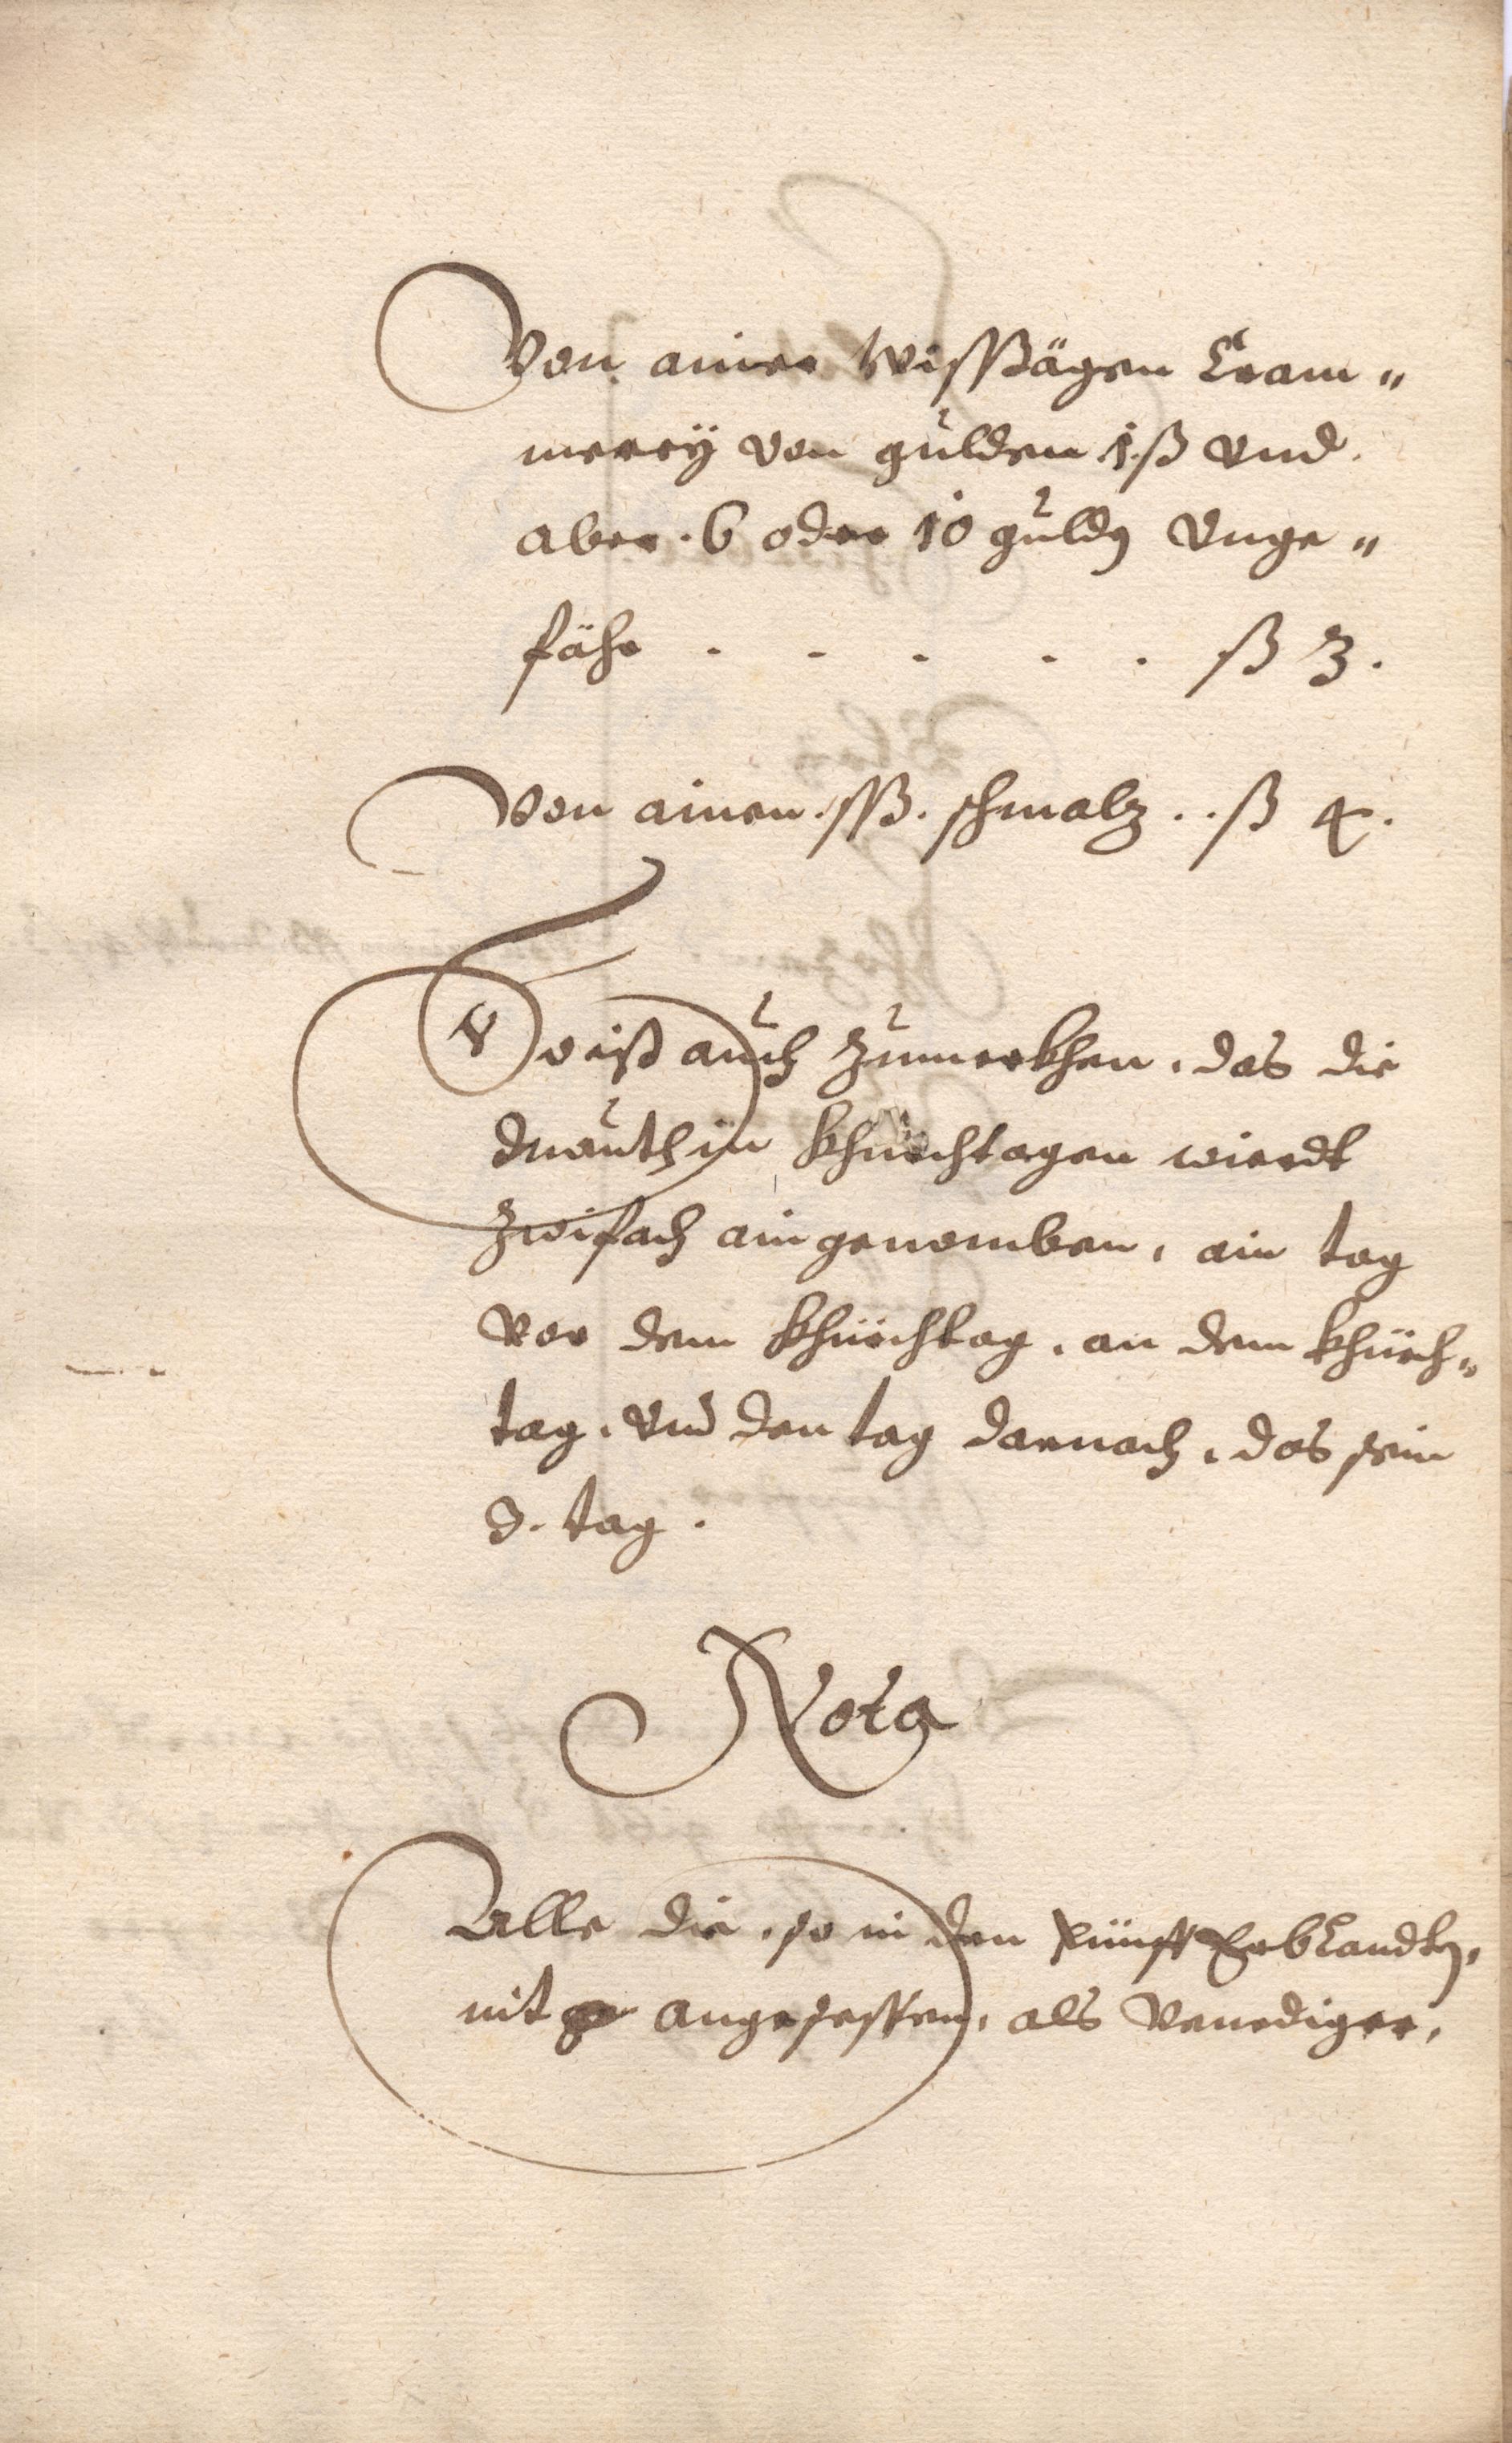 Von ainer Cram„
merey von gulden 1 ß vnd
aber . 6 oder 10 guld vnge„
fähr . . . . . ß 3.
Von ainen schmalz . . ß 4.
Es ist auch zumerkhen, das die
Mauth in khürchtagen wierdt
zwifach ain genomben, ain tag
vor dem khürchtag, an dem khürch„
tag, vnd den tag darnach, das sein
3. tag.
Nota
Alle die, so in den fünff Erblandten,
nit angesessen, als Venediger,